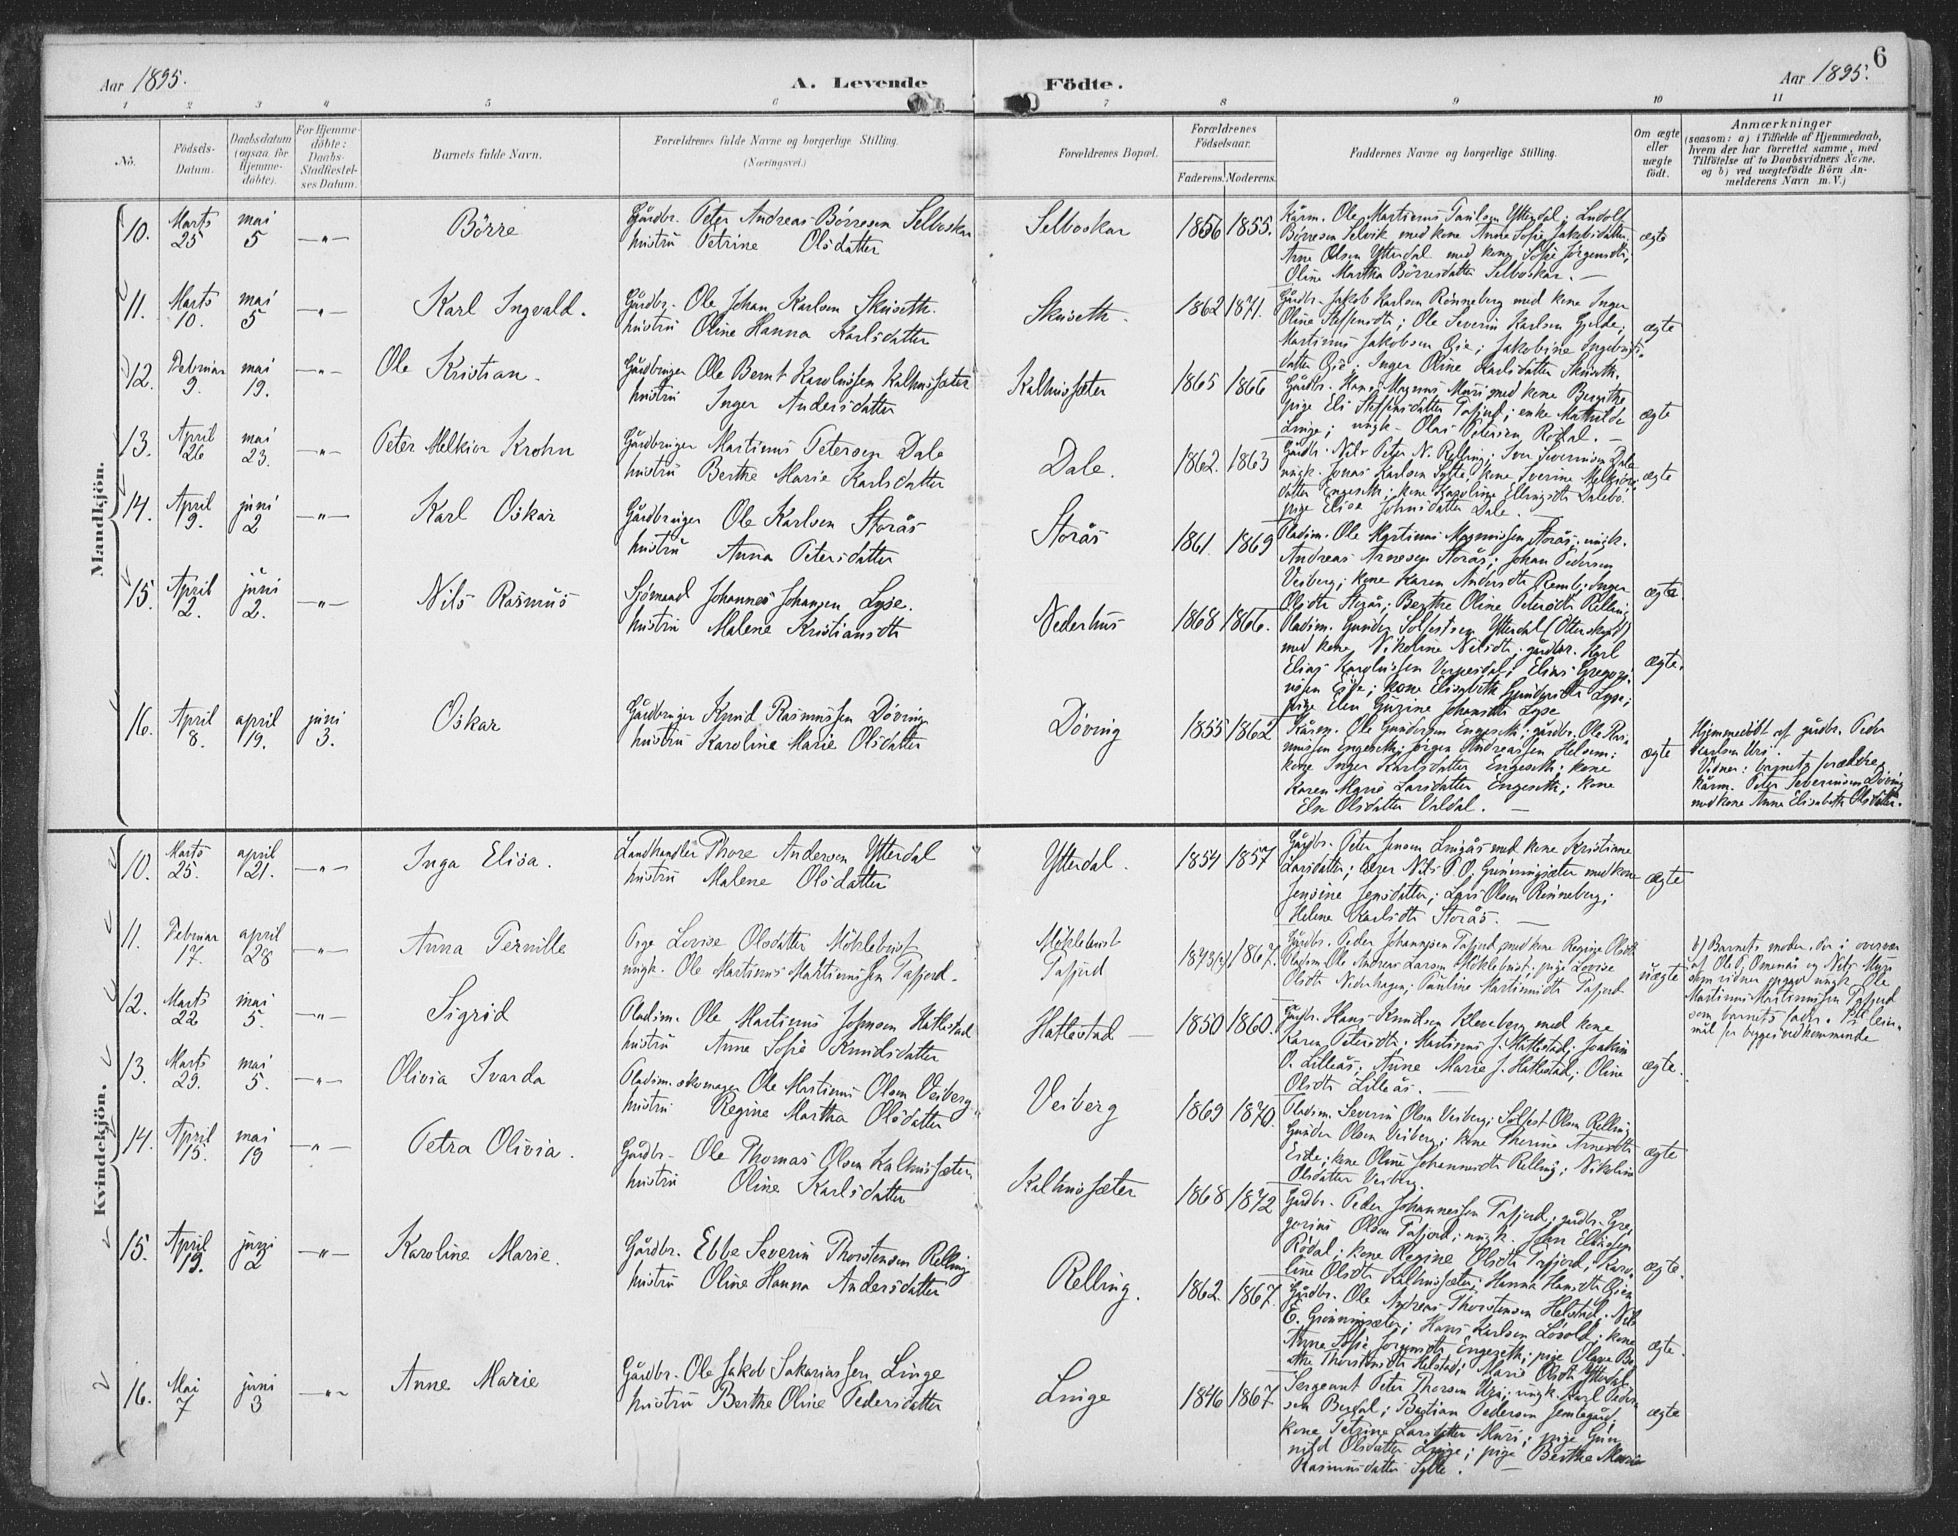 6
Aar 1895.
A. Levende Födte.
Aar 1895.
1 2 3 4 5 6 7 8 9 10 11
No.
Födsels-Datum.
Daabsdatum (ogsaa for Hjemme-döbte).
For Hjemme-döbte: Daabs-Stadfæstel-ses Datum.
Barnets fulde Navn.
Forældrenes fulde Navne og borgerlige Stilling.
(Næringsvei.)
Forældrenes Bopæl.
Forældrenes Födselsaar.
Faderens. Moderens.
Faddernes Navne og borgerlige Stilling.
Om ægte eller uægte födt.
Anmærkninger
(saasom: a) i Tilfælde af Hjemmedaab,
hvem der har forrettet samme, med
Tilföielse af to Daabsvidners Navne,
og b) ved uægtefödte Börn An-
melderens Navn m. V.)
Mandkjön.
10. Marts 25 mai 5 —"— Börre
Gårdbr. Peter Andreas Börresen Selboskar
hustru Petrine Olsdatter
Selboskar 1856 1855.
Kårm. Ole Martinus Paulsen Ytterdal; Ludolf
Börresen Selvik med kone Anne Sofie Jakobsdatter;
Arne Olsen Ytterdal med kone Sofie Jörgensdtr;
Oline Martha Börresdatter Selboskar. —
ægte
11. Marts 10. mai 5 —"— Karl Ingvald.
Gårdbr. Ole Johan Karlsen Skuseth.
hustru Oline Hanna Karlsdatter
Skuseth. 1862 1871.
Gårdbr. Jakob Karlsen Rönneberg med kone Inger
Oline Steffensdtr; Ole Severin Karlsen Gjelde;
Martinus Jakobsen Öie; Jakobine Ingebrigts-
datter Öie; Inger Oline Karlsdatter Skuseth.
ægte
12. Februar 9. mai 19. —"— Ole Kristian.
Gårdbruger Ole Bernt Karolussen Kalhussæter
hustru Inger Andersdatter
Kalhussæter 1865 1866
Gårdbr. Hans Magnus Muri med kone Bergithe
pige Eli Steffensdatter Tafjord; enke Mathilde
Linge; ungk. Olas Petersen Rödal. —
ægte
13. April 26 mai 23. —"— Peter Melkior Krohn
Gårdbruger Martinus Petersen Dale
hustru Berthe Marie Karlsdatter
Dale. 1862. 1863
Gårdbr. Nils Peter N. Relling; Iver Severinsen Dale
ungk. Jonas Karlsen Sylte, kone Severine Melkiors-
datter Engeseth; kone Karoline Ellingsdtr Dalebö.
pige Elise Johnsdatter Dale. —
ægte
14. April 9. juni 2 —"— Karl Oskar
Gårdbruger Ole Karlsen Storås
hustru Anna Petersdatter
Storås 1861. 1869
Pladsm. Ole Martinus Magnussen Storås; ungk.
Andreas Arnesen Storås; Johan Pedersen
Veiberg; kone Karen Andersdtr Remb; Inger
Olsdtr Storås; Berthe Oline Petersdtr Relling
ægte.
15. April 2. juni 2. —"— Nils Rasmus
Sjömand Johannes Johansen Lyse.
hustru Malene Kristiansdtr
Nederhus 1868 1866.
Pladsm. Gunder Solfestsen Ytterdal
med kone Nikoline Nilsdtr; gårdbr. Karl
Elias Karolussen Verpesdal; Elias Gregori-
ussen Eide; kone Elisabeth Gundersdtr Lyse;
pige Elen Gurine Johansdtr Lyse
ægte.
16. April 8. april 19. juni 3. Oskar
Gårdbruger Knud Rasmussen Döving
hustru Karoline Marie Olsdatter
Döving 1855 1862
Kårm. Ole Gundersen Engeseth; gårdbr. Ole Ras-
mussen Engeseth; Jörgen Andreassen Helsem;
kone Inger Karlsdatter Engeseth; kone
Karen Marie Larsdatter Engeseth; kone
Else Olsdatter Valdal. —
ægte
Hjemmedöbt af gårdbr. Peder
Karlsen Uri.
Vidner: barnets forældre,
kårm. Peter Severinsen Döving
med kone Anne Elisabeth Olsdatter.
Kvindekjön.
10. Marts 25. april 21. —"— Inga Elisa.
Landhandler Thore Andersen Ytterdal
hustru Malene Olsdatter
Ytterdal. 1854 1857
Gårdbr. Peter Jensen Lingås med kone Kristianne
Larsdatter; lærer Nils P. O. Grönningsæter med kone
Jensine Jensdatter; Lars Olsen Rönneberg;
Helene Karlsdtr Storås. —
ægte
11. Februar 17. april 28 —"— Anna Pernille
Pige Lovise Olsdatter Möklebust
ungk. Ole Martinus Martinussen Tafjord.
Möklebust
Tafjord
1873(?) 1867.
Gårdbr. Peder Johannessen Tafjord med kone Regine Olsdtr
Pladsm. Ole Andreas Larsen Möklebust; pige Lovise
Olsdtr Nederhagen; Pauline Martinusdtr Tafjord
uægte
b) Barnets moder, der i overvær
af Ole P. Omenås og Nils Muri
som vidner opgav ungk. Ole
Martinus Martinussen Tafjord
som barnets fader. 1ste leier-
mål for begge vedkommende
12. Marts 22 mai 5. —"— Sigrid
Pladsm. Ole Martinus Johnsen Hattestad
hustru Anne Sofie Knudsdatter
Hattestad — 1850 1860.
Gårdbr. Hans Knudsen Kleveberg med kone
Karen Petersdtr; Martinus J. Hattestad; Joakim
O. Lilleås; Anne Marie J. Hattestad; Oline
Olsdtr Lilleås. —
ægte.
13. Marts 29. mai 5. —"— Olivia Ivarda
Pladsm. skomager Ole Martinus Olsen Veiberg
hustru Regine Martha Olsdatter
Veiberg 1869 1870.
Pladsm. Severin Olsen Veiberg; Solfest Olsen Relling
Gunder Olsen Veiberg; kone Therine Arnesdtr
Eide; kone Oline Johannesdtr Relling; Nikoline
Olsdatter Veiberg.
ægte
14. April 15. mai 19 —"— Petra Olivia.
Gårdbr. Ole Thomas Olsen Kalhussæter
hustru Oline Karlsdatter
Kalhussæter 1868 1872
Gårdbr. Peder Johannessen Tafjord; gårdbr. Gre-
gorius Olsen Tafjord; ungk. Jens Eliassen
Rödal; kone Regine Olsdtr Tafjord; Karo-
line Olsdtr Kalhussæter; Hanna Hansdtr Öien
ægte.
15. April 19. juni 2 —"— Karoline Marie.
Gårdbr. Ebbe Severin Thorstensen Relling
hustru Oline Hanna Andersdatter
Relling. 1862. 1867.
Gårdbr. Ole Andreas Thorstensen Helstad; Nils
E. Grönningsæter; Hans Karlsen Lövold; kone
Anne Sofie Jörgensdtr Engeseth; pige Olave Be-
athe Thorstensdtr Helstad; Marie Olsdtr Ytterdal
ægte.
16. Mai 7 juni 3 —"— Anne Marie
Gårdbr. Ole Jakob Sakariassen Linge
hustru Berthe Oline Pedersdatter
Linge 1846 1867
Sergeant Peter Thorsen Uri; ungk. Karl Peder-
sen Berdal; Bastian Pedersen Jemtegård;
kone Petrine Larsdatter Muri; pige Gun-
nild Olsdatter Linge; pige Berthe Marie
Rasmusdatter Sylte. —
ægte